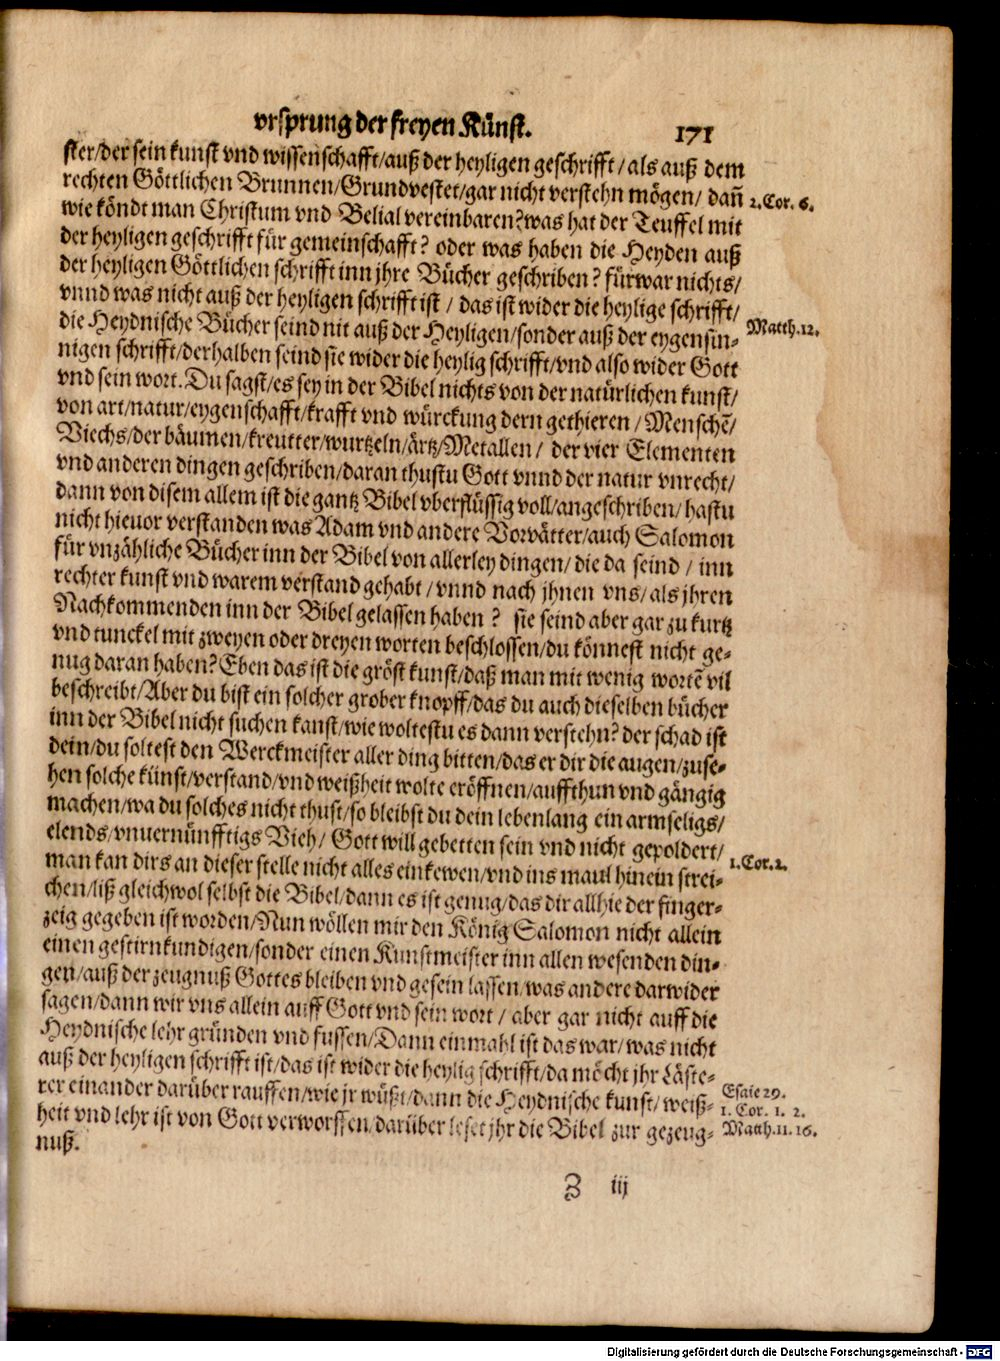 vrsprung der freyen Künst. 171
ster/der sein kunst vnd wissenschafft/auß der heyligen geschrifft/als auß dem
rechten Göttlichen Brunnen/Grundvestet/gar nicht verstehn mögen/dañ
2. Cor. 6.
wie köndt man Christum vnd Belial vereinbaren? was hat der Teuffel mit
der heyligen geschrifft für gemeinschafft? oder was haben die Heyden auß
der heyligen Göttlichen schrifft inn jhre Bücher geschriben? fürwar nichts/
vnnd was nicht auß der heyligen schrifft ist/das ist wider die heylige schrifft/
Matth. 12.
die Heydnische Bücher seind nit auß der Heyligen/sonder auß der eygensin-
nigen schrifft/derhalben seind sie wider die heylig schrifft/vnd also wider Gott
vnd sein wort. Du sagst/es sey in der Bibel nichts von der natürlichen kunst/
von art/natur/eygenschafft/krafft vnd würckung dern gethieren/Menschẽ/
Viechs/der bäumen/kreutter/wurtzeln/ärtz/Metallen/ der vier Elementen
vnd anderen dingen geschriben/daran thustu Gott vnnd der natur vnrecht/
dann von disem allem ist die gantz Bibel vberflüssig voll/angeschriben/hastu
nicht hieuor verstanden was Adam vnd andere Vorvätter/auch Salomon
für vnzähliche Bücher inn der Bibel von allerley dingen/die da seind/inn
rechter kunst vnd warem verstand gehabt/vnnd nach jhnen vns/als jhren
Nachkommenden inn der Bibel gelassen haben? sie seind aber gar zu kurtz
vnd tunckel mit zweyen oder dreyen worten beschlossen/du könnest nicht ge-
nug daran haben? Eben das ist die gröst kunst/daß man mit wenig wortẽ vil
beschreibt/Aber du bist ein solcher grober knopff/das du auch dieselben bücher
inn der Bibel nicht suchen kanst/wie woltestu es dann verstehn? der schad ist
dein/du soltest den Werckmeister aller ding bitten/das er dir die augen/zuse-
hen solche künst/verstand/vnd weißheit wolte eröffnen/auffthun vnd gängig
machen/wa du solches nicht thust/so bleibst du dein lebenlang ein armseligs/
elends/vnuernünfftigs Vieh/ Gott will gebetten sein vnd nicht gepoldert/
1. Cor. 2.
man kan dirs an dieser stelle nicht alles einkewen/vnd ins maul hinein strei-
chen/liß gleichwol selbst die Bibel/dann es ist genug/das dir allhie der finger-
zeig gegeben ist worden/Nun wöllen mir den König Salomon nicht allein
einen gestirnkundigen/sonder einen Kunstmeister inn allen wesenden din-
gen/auß der zeugnuß Gottes bleiben vnd gesein lassen/was andere darwider
sagen/dann wir vns allein auff Gott vnd sein wort/ aber gar nicht auff die
Heydnische lehr gründen vnd fussen/Dann einmahl ist das war/was nicht
auß der heyligen schrifft ist/das ist wider die heylig schrifft/da möcht jhr Läste-
rer einander darüber rauffen/wie jr wüßt/dann die Heydnische kunst/weiß-
Esaie 29.
1. Cor. 1. 2.
heit vnd lehr ist von Gott verworffen/darüber leset jhr die Bibel zur gezeug-
Matth. 11. 16.
nuß.
Z iij
Digitalisierung gefördert durch die Deutsche Forschungsgemeinschaft - DFG